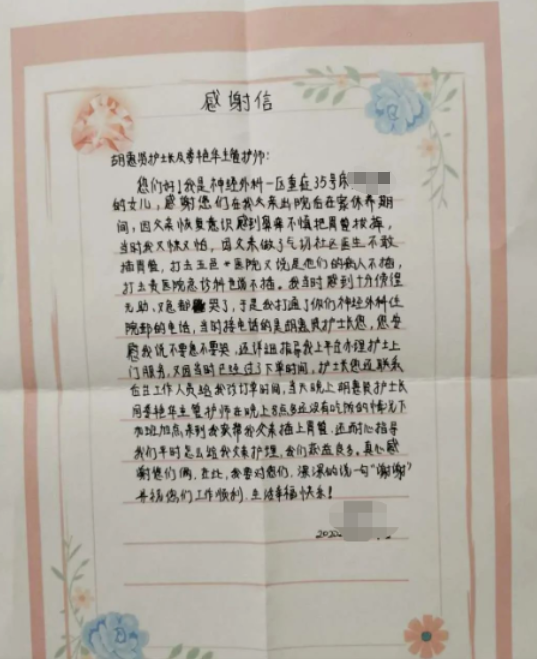 感谢信
胡惠贤护士长及李艳华主管护师：
您们好！我是神经外科一区重症35号床
的女儿，感谢您们在我父亲出院后在家休养期
间，因父亲恢复意识感到鼻痒不慎把胃管拔掉，
当时我又惊又怕，因父亲做了气切社区医生不敢
插胃管，打去五邑*医院又说是他们的病人不插，
打去贵医院急诊科也满不插。我当时感到十分傍徨
无助，又急都哭了，于是我打通了你们神经外科住
院部的电话，当时接电话的是胡惠贤护士长您，您安
慰我说不要急不要哭，还详细指导我上平台办理护士上
门服务，又因当时已经过了下单时间，护士长您还联系
台工作人员给我改订单时间，当天晚上胡惠贤护士长
同李艳华主管护师在晚上8点多还没有吃饭的情况下
加班加点来到我家帮我父亲插上胃管，还耐心指导
我们平时怎么给我父亲护理，我们获益良多。真心感
谢您们俩，在此，我要对您们，深深的说一句“谢谢”
并祝您们工作顺利，生活幸福快乐！
202